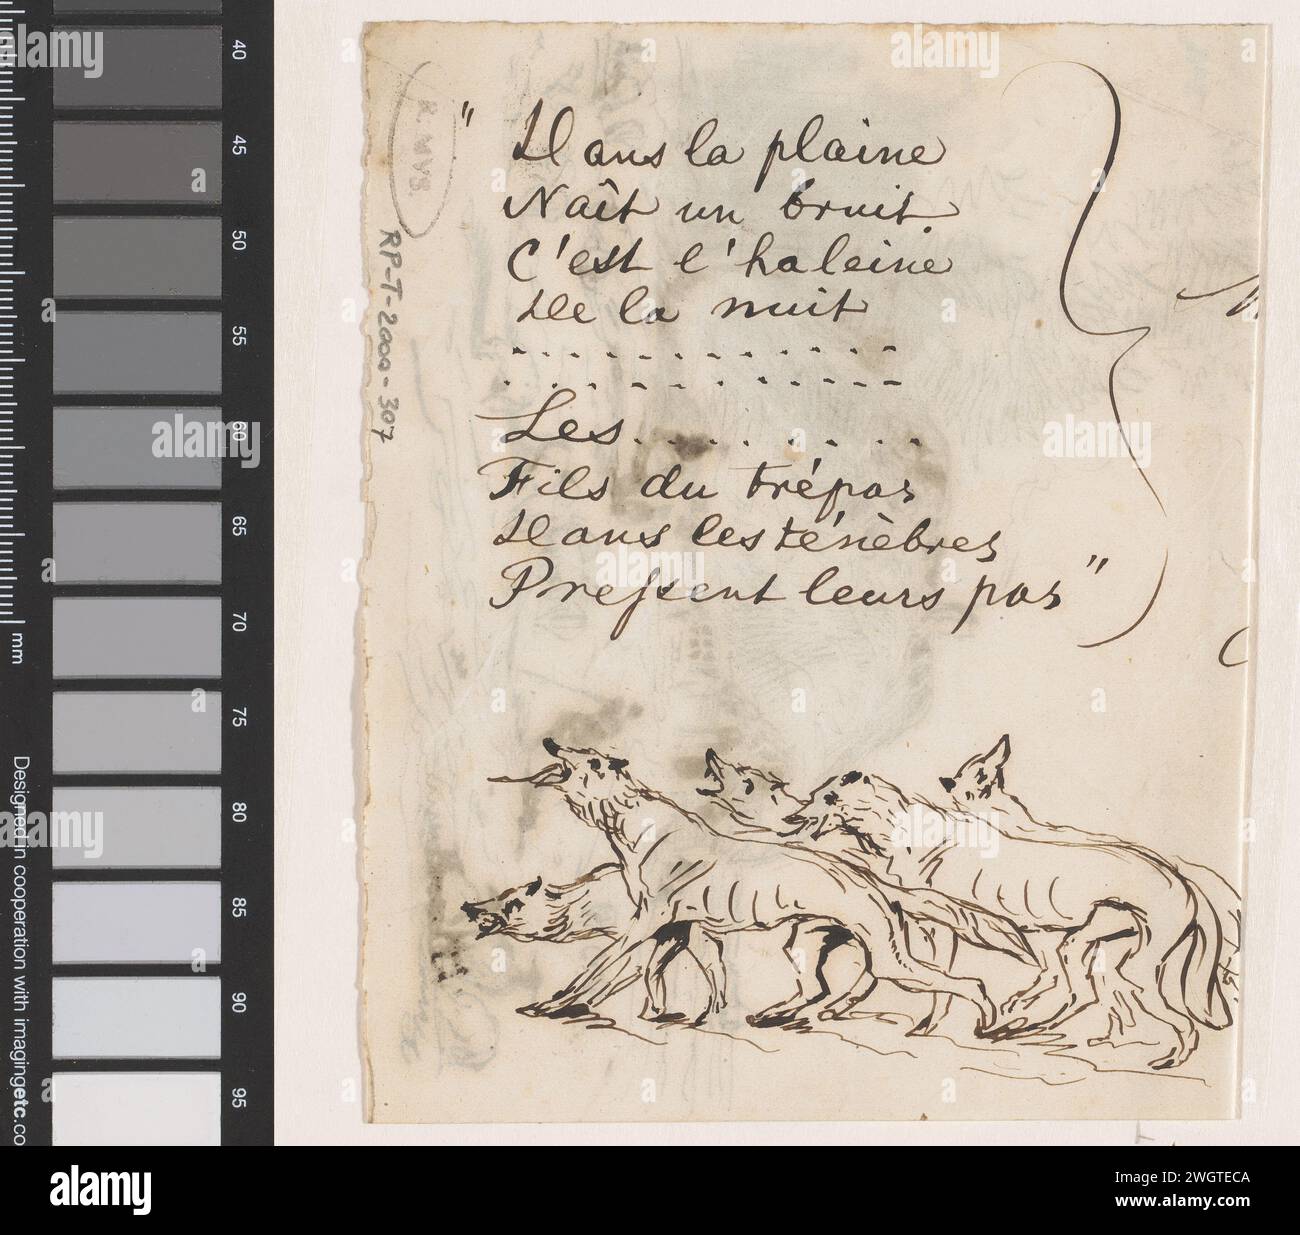 " Dans la plaine
Naît un bruit.
C'est l'haleine
De la nuit
. . . . . . . . . . . .
. . . . . . . . . . . .
Les . . . . . . . .
Fils du trépas
Dans les ténèbres
Pressent leurs pas "
R. MVS.
RP-T-2000-307
40
45
50
55
60
65
70
75
80
85
90
95
mm
Designed in cooperation with imagingetc.co
alamy
a
alamy
Image ID: 2WGTECA
www.alamy.com